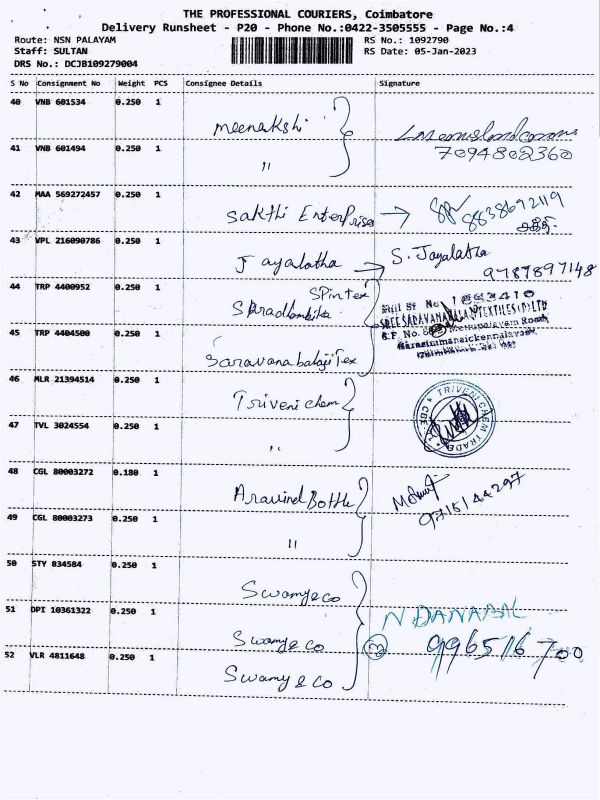 THE PROFESSIONAL COURIERS, Coimbatore
Delivery Runsheet - P20 - Phone No.:0422-3505555 - Page No.:4
Route: NSN PALAYAM
RS No.: 1092790
Staff: SULTAN
RS Date: 05-Jan-2023
DRS No.: DCJB109279004
S No Consignment No Weight PCS Consignee Details Signature
40 VNB 601534 0.250 1 Meenakshi
41 VNB 601494 0.250 1 "
7094802360
42 MAA 569272457 0.250 1 Sakthi Enterprises → 8838692119
43 VPL 216090786 0.250 1 Jayalatha → S. Jayalatha
9787897148
44 TRP 4400952 0.250 1 Spintex
SREE SARAVANABALAJI TEXTILES (P) LTD
S.F. No. Mettupalayam Road,
Narasimmanaickenpalayam
45 TRP 4404500 0.250 1 Saravanabalaji Tex
46 MLR 21394514 0.250 1 Triveni chem
TRIVENI CHEM TRADE
47 TVL 3024554 0.250 1 "
48 CGL 80003272 0.180 1 Aravind Bottle
9715144297
49 CGL 80003273 0.250 1 "
50 STY 834584 0.250 1 Swamy & co
51 DPI 10361322 0.250 1 Swamy & co
N. DANABAL
9965116700
52 VLR 4811648 0.250 1 Swamy & co